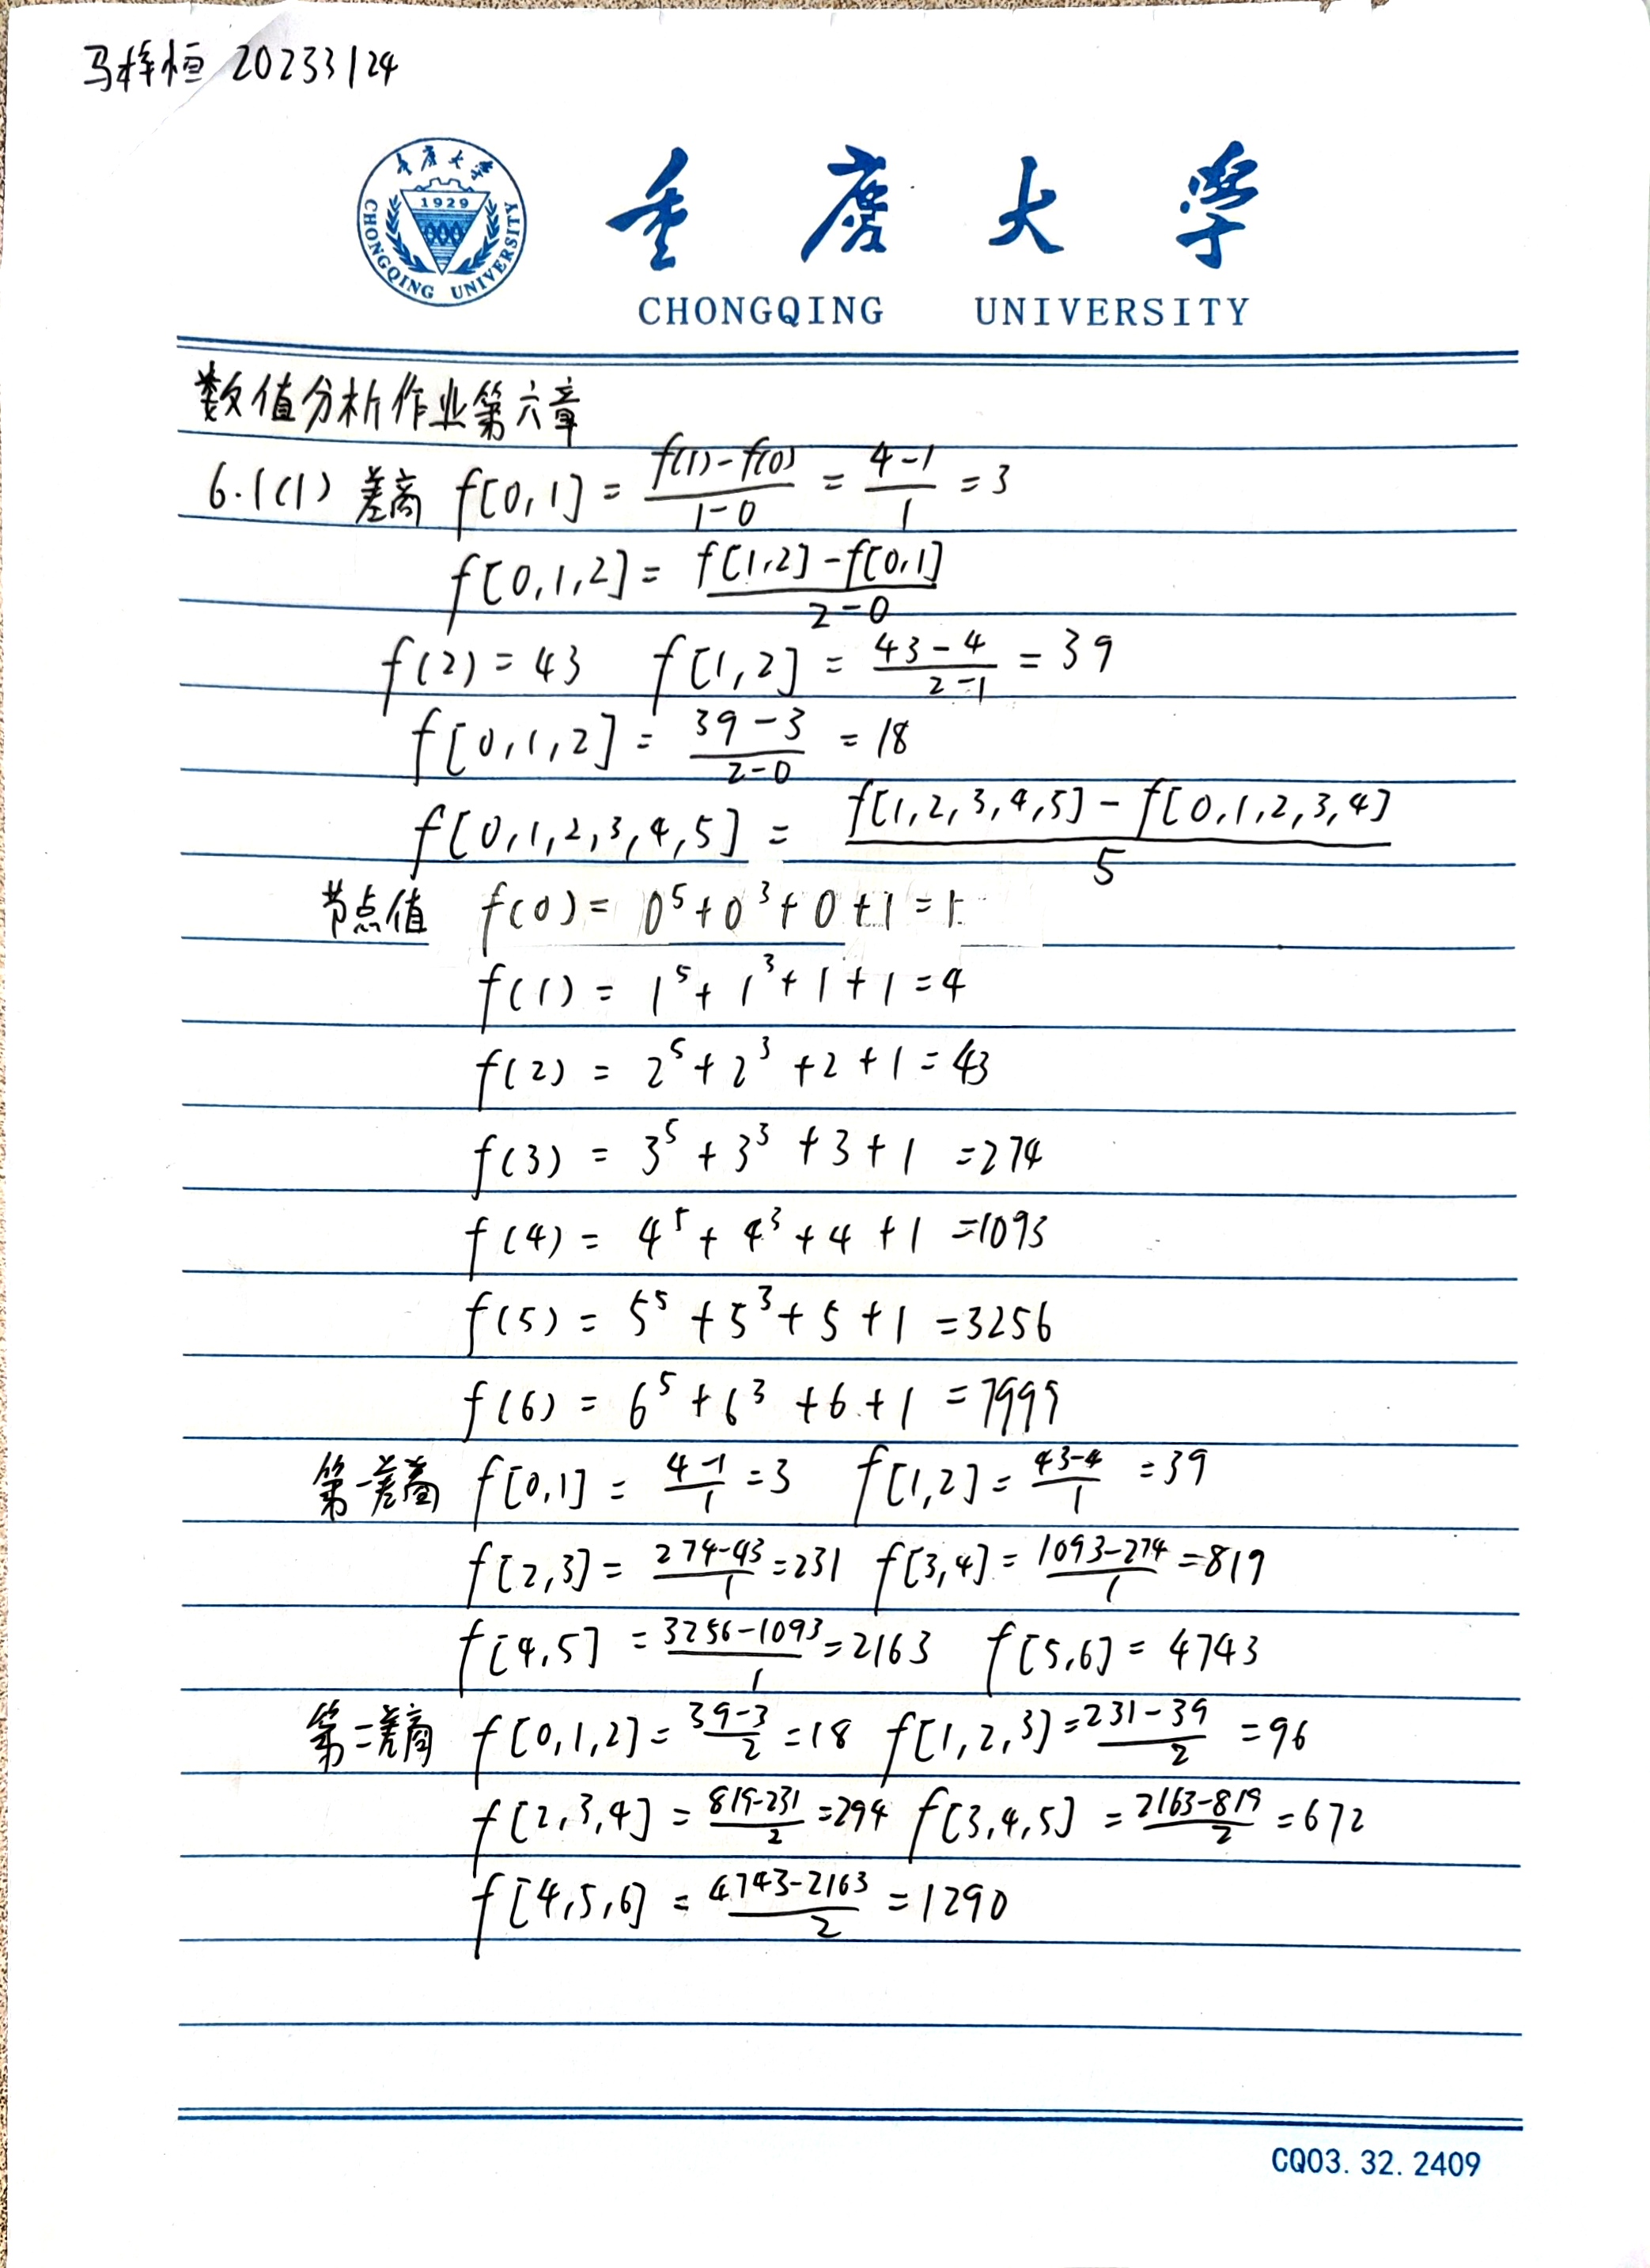 马梓恒 20233124
重庆大学
1929
CHONGQING UNIVERSITY
重 庆 大 学
CHONGQING UNIVERSITY
数值分析作业第六章
6.1(1) 差商 f[0,1] = \frac{f(1)-f(0)}{1-0} = \frac{4-1}{1} = 3
f[0,1,2] = \frac{f[1,2]-f[0,1]}{2-0}
f(2) = 43 f[1,2] = \frac{43-4}{2-1} = 39
f[0,1,2] = \frac{39-3}{2-0} = 18
f[0,1,2,3,4,5] = \frac{f[1,2,3,4,5]-f[0,1,2,3,4]}{5}
节点值 f(0) = 0^5+0^3+0+1=1
f(1) = 1^5+1^3+1+1=4
f(2) = 2^5+2^3+2+1=43
f(3) = 3^5+3^3+3+1=274
f(4) = 4^5+4^3+4+1=1093
f(5) = 5^5+5^3+5+1=3256
f(6) = 6^5+6^3+6+1=7999
第一差商 f[0,1] = \frac{4-1}{1} = 3 f[1,2] = \frac{43-4}{1} = 39
f[2,3] = \frac{274-43}{1} = 231 f[3,4] = \frac{1093-274}{1} = 819
f[4,5] = \frac{3256-1093}{1} = 2163 f[5,6] = 4743
第二差商 f[0,1,2] = \frac{39-3}{2} = 18 f[1,2,3] = \frac{231-39}{2} = 96
f[2,3,4] = \frac{819-231}{2} = 294 f[3,4,5] = \frac{2163-819}{2} = 672
f[4,5,6] = \frac{4743-2163}{2} = 1290
CQ03.32.2409